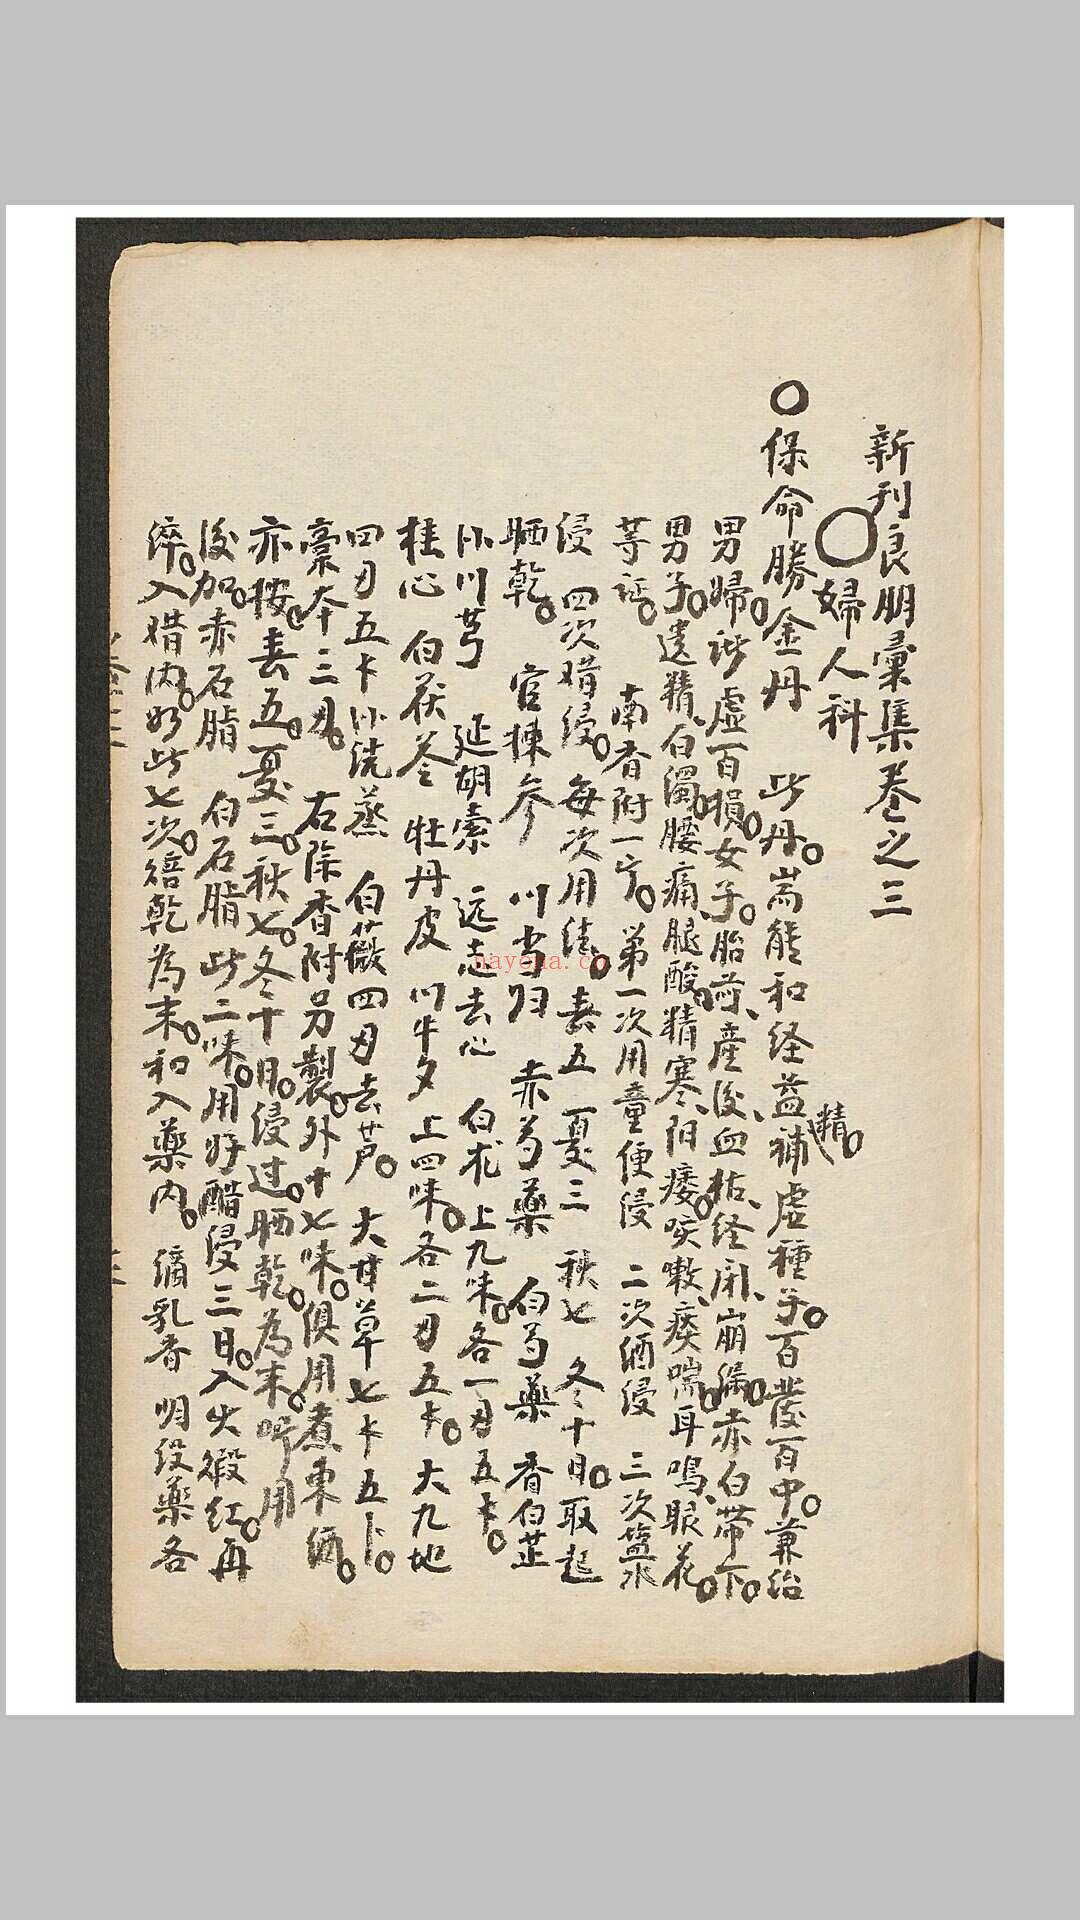 新刊良朋彙集卷之三
〇婦人科
〇保命勝金丹　此丹。耑能和经益精。補虛種子。百發百中。兼治
男婦。諸虛百損。女子。胎前、產後、血枯、经闭、崩漏。赤白带下。
男子。遺精、白濁。腰痛、腿酸、精寒、阳痿。咳嗽、痰喘。耳鳴、眼花。
等证。　南香附一斤。第一次用童便浸　二次酒浸　三次塩水
浸　四次醋浸。每次用法。春五　夏三　秋七　冬十日。取起
晒乾。　官揀參　川当归　赤芍藥　白芍藥　香白芷
川芎　延胡索　远志去心　白朮　上九味。各一刄五卜。
桂心　白茯苓　牡丹皮　川牛夕　上四味。各二刄五卜。大九地
四刄五卜　洗蒸　白薇四刄去芦。　大甘草七卜五卜。
藁本三刄。　右除香附另製。外十七味。俱用煮東酒。
亦按。春五。夏三。秋七。冬十日。浸过。晒乾。為末。听用
後加。赤石脂　白石脂　此二味。用好醋浸三日。入火煅红。再
淬。入醋内。如此七次。焙乾為末。和入藥内。　滴乳香　明没藥各
nayona.cn